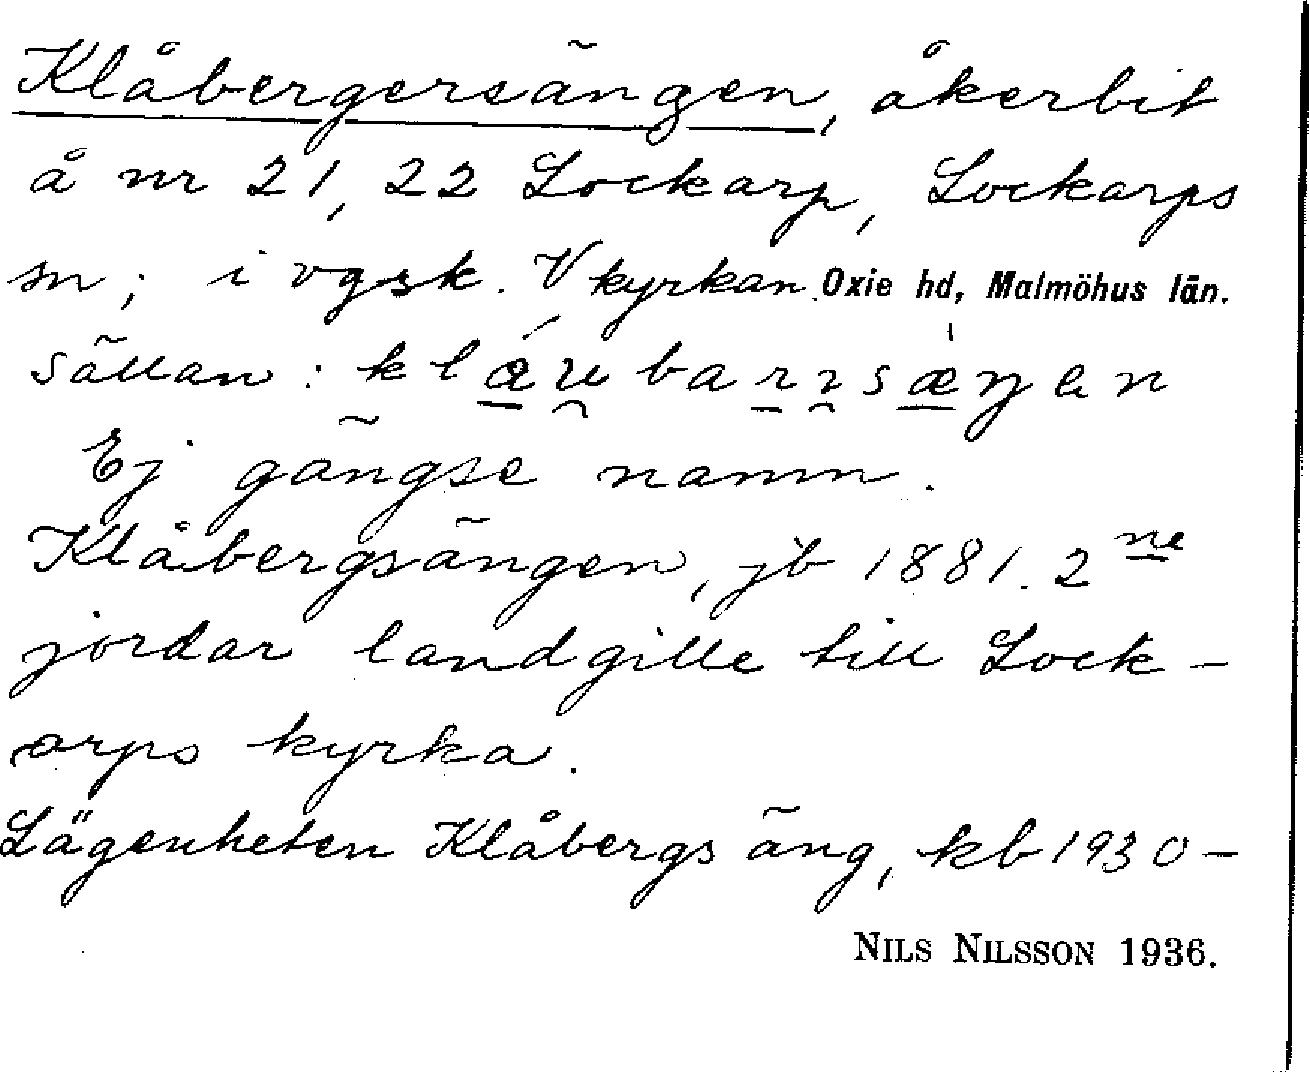 Klåbergersängen, åkerbit
å nr 21, 22 Lockarp, Lockarps
sn; i vgsk. V kyrkan. Oxie hd, Malmöhus län.
sällan:
Ej gängse namn.
Klåbergsängen, jb 1881. 2 ne
jordar landgille till Lock-
arps kyrka.
Lägenheten Klåbergs äng, kb 1930-
NILS NILSSON 1936.